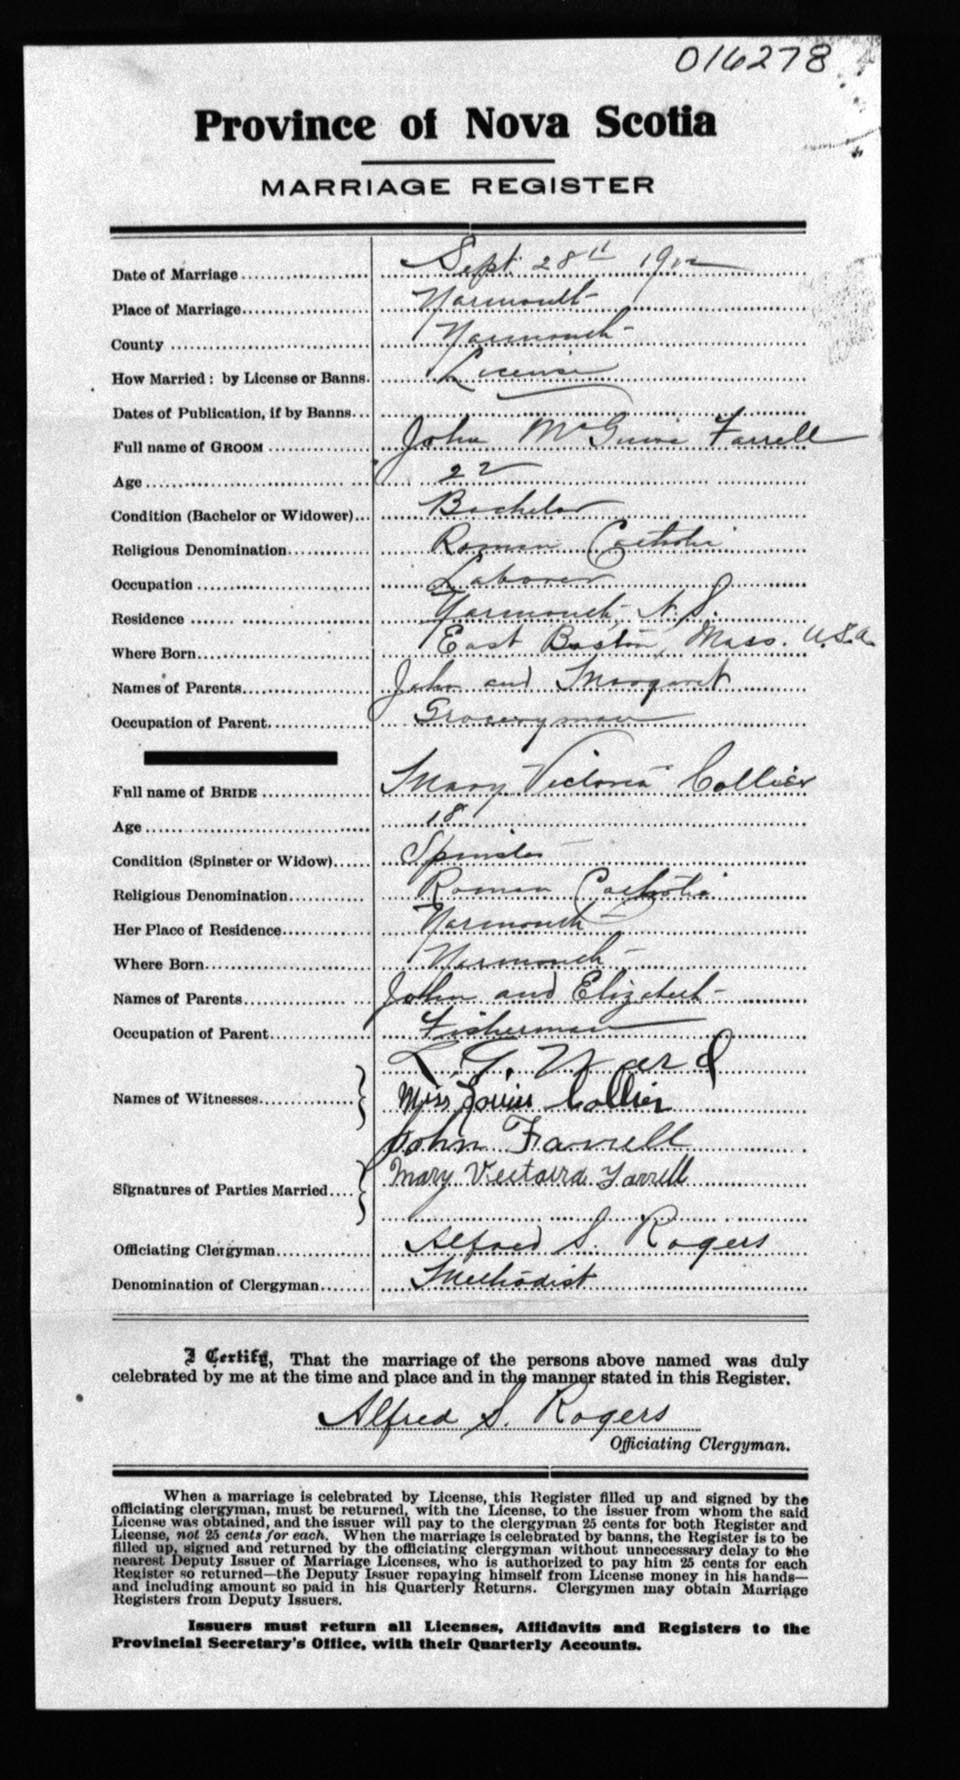 016278
Province of Nova Scotia
MARRIAGE REGISTER
Date of Marriage Sept. 28th 1912
Place of Marriage Yarmouth
County Yarmouth
How Married: by License or Banns. License
Dates of Publication, if by Banns
Full name of GROOM John McGuire Farrell
Age 22
Condition (Bachelor or Widower) Bachelor
Religious Denomination Roman Catholic
Occupation Laborer
Residence Yarmouth, N.S.
Where Born East Boston, Mass. U.S.A.
Names of Parents John and Margaret
Occupation of Parent Groceryman
Full name of BRIDE Mary Victoria Collier
Age 18
Condition (Spinster or Widow) Spinster
Religious Denomination Roman Catholic
Her Place of Residence Yarmouth
Where Born Yarmouth
Names of Parents John and Elizabeth
Occupation of Parent Fisherman
L. G. Ward
Names of Witnesses Miss Louise Collier
John Farrell
Signatures of Parties Married Mary Victoria Farrell
Officiating Clergyman Alfred S. Rogers
Denomination of Clergyman Methodist
I Certify, That the marriage of the persons above named was duly
celebrated by me at the time and place and in the manner stated in this Register.
Alfred S. Rogers
Officiating Clergyman.
When a marriage is celebrated by License, this Register filled up and signed by the
officiating clergyman, must be returned, with the License, to the issuer from whom the said
License was obtained, and the issuer will pay to the clergyman 25 cents for both Register and
License, not 25 cents for each. When the marriage is celebrated by banns, the Register is to be
filled up, signed and returned by the officiating clergyman without unnecessary delay to the
nearest Deputy Issuer of Marriage Licenses, who is authorized to pay him 25 cents for each
Register so returned—the Deputy Issuer repaying himself from License money in his hands—
and including amount so paid in his Quarterly Returns. Clergymen may obtain Marriage
Registers from Deputy Issuers.
Issuers must return all Licenses, Affidavits and Registers to the
Provincial Secretary's Office, with their Quarterly Accounts.